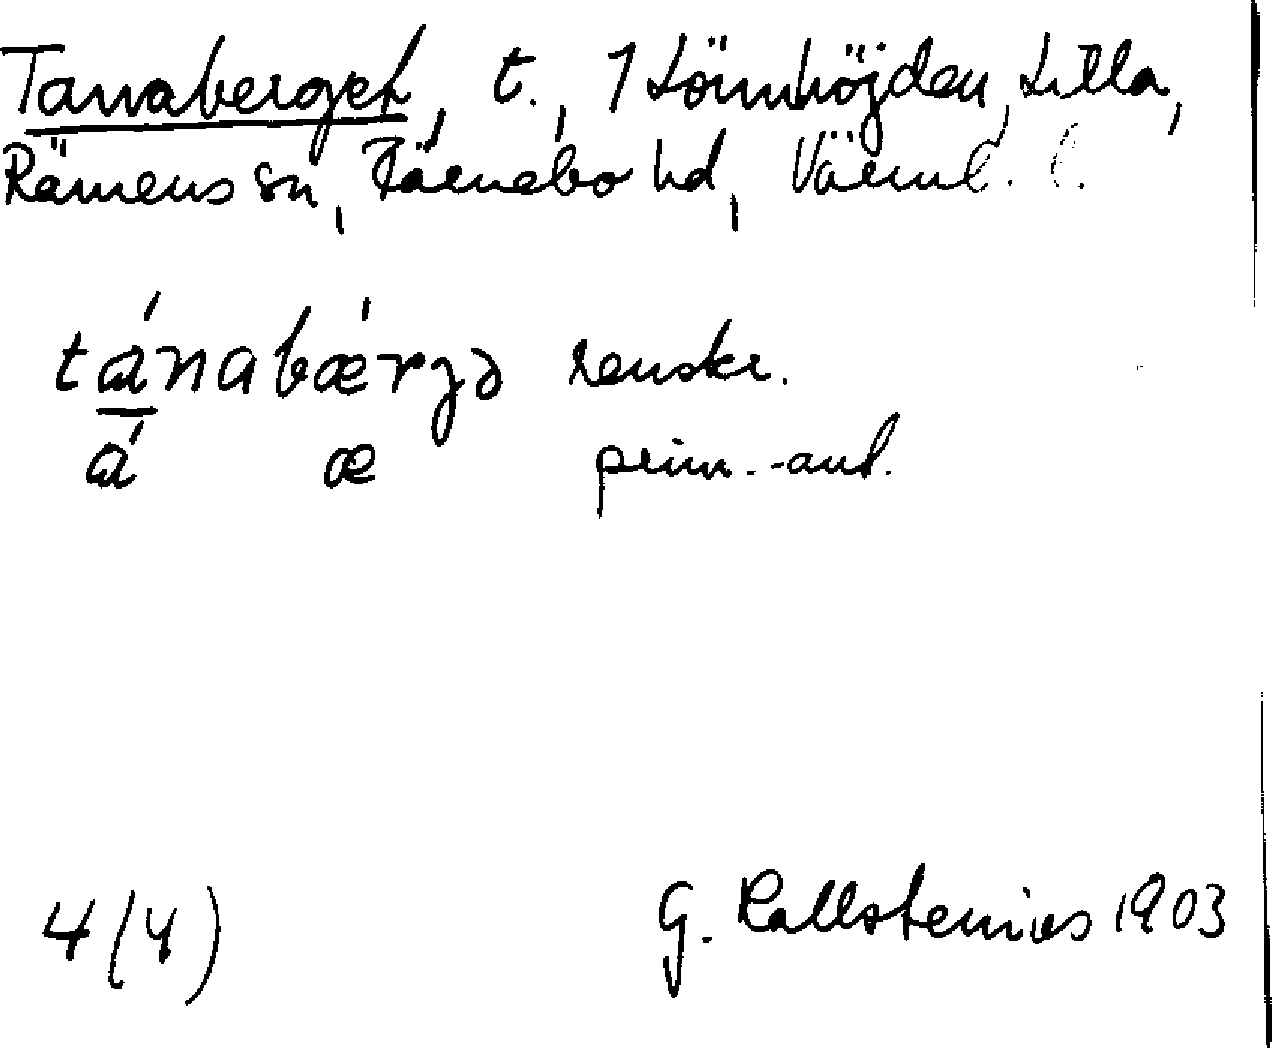 Tanaberget, t., 1 Lönnhöjden, Lilla,
Rämens sn, Färnebo hd, Värml. l.
tánabǽrgə renskr.
á æ prim.-auf.
4(4)
G. Kallstenius 1903